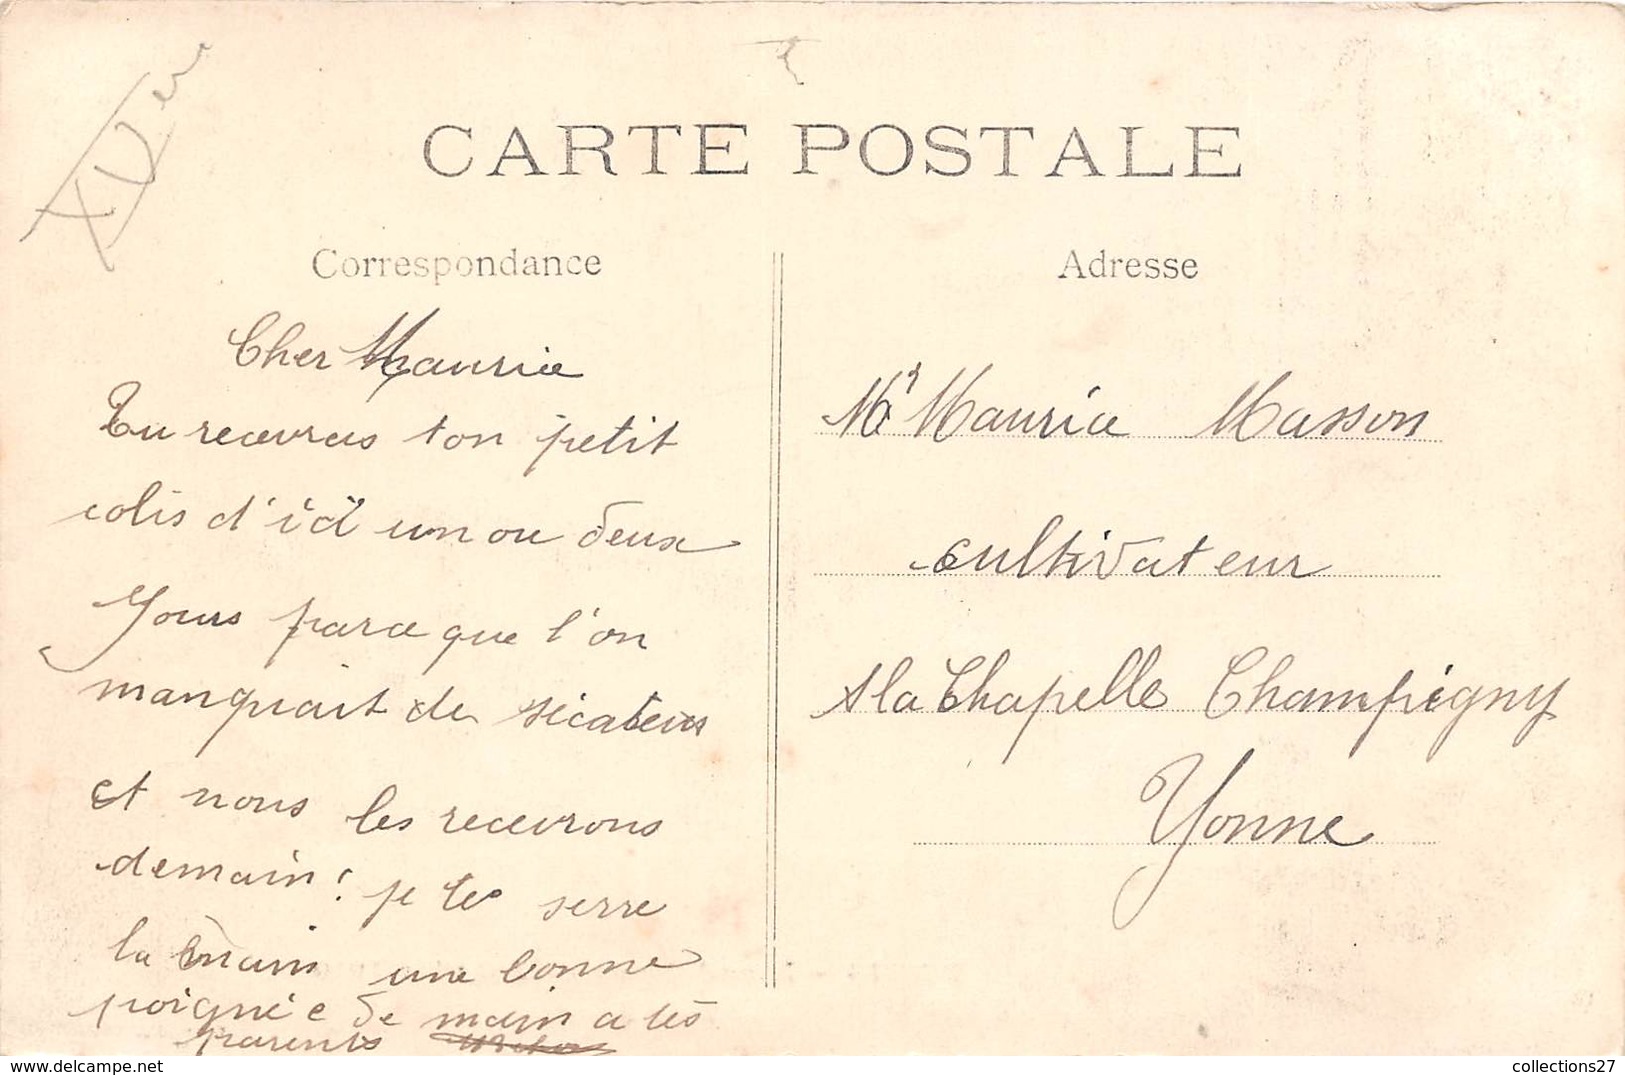 XVer
CARTE POSTALE
Correspondance
Adresse
Cher Maurice
Tu recevras ton petit
colis d'ici un ou deux
Jours parce que l'on
manquait de sécateurs
et nous les recevrons
demain! je te serre
la main une bonne
poignée de main a tes
parents
Mr Maurice Masson
cultivateur
A la Chapelle Champigny
Yonne
www.delcampe.net
collections27